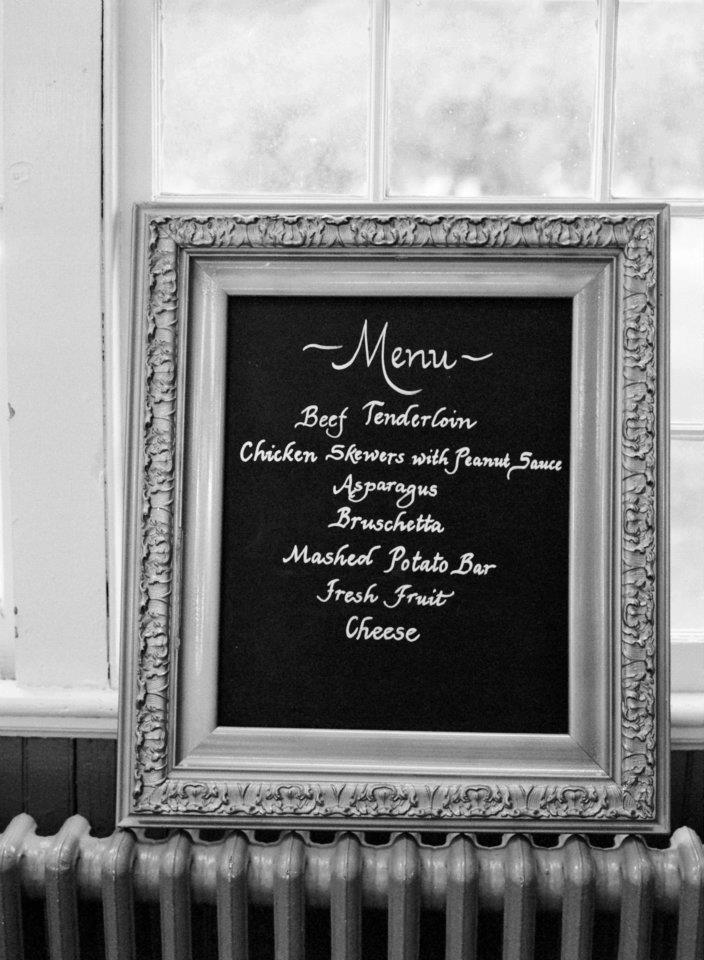 ~Menu~
Beef Tenderloin
Chicken Skewers with Peanut Sauce
Asparagus
Bruschetta
Mashed Potato Bar
Fresh Fruit
Cheese